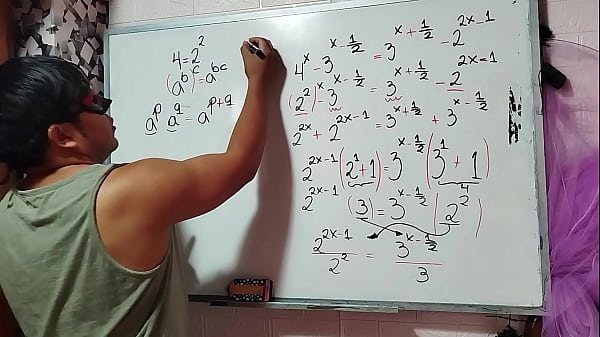 4 = 2²
(a^b)^c = a^bc
a^p a^q = a^p+q
4^x - 3^x-½ = 3^x+½ - 2^2x-1
(2²)^x - 3^x-½ = 3^x+½ - 2^2x-1
2^2x + 2^2x-1 = 3^x+½ + 3^x-½
2^2x-1 (2¹+1) = 3^x-½ (3¹+1)
4
2^2x-1 (3) = 3^x-½ (2²)
2^2x-1 / 2² = 3^x-½ / 3